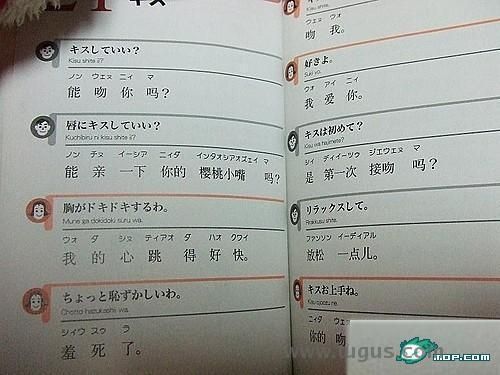 キス
キスしていい？
Kisu shite ii?
ノン ウェヌ ニィ マ
能 吻 你 吗？
唇にキスしていい？
Kuchibiru ni kisu shite ii?
ノン チヌ イーシア ニィダ インタオシアオズェイ マ
能 亲 一下 你的 樱桃小嘴 吗？
胸がドキドキするわ。
Mune ga dokidoki suru wa.
ウォ ダ シヌ ティアオ ダ ハオ クワイ
我 的 心 跳 得 好 快。
ちょっと恥ずかしいわ。
Chotto hazukashii wa.
シィウ スゥ ラ
羞 死 了。
Kisu shite.
ウェヌ ウォ
吻 我。
好きよ。
Suki yo.
ウォ アイ ニィ
我 爱 你。
キスは初めて？
Kisu wa hajimete?
シィ ディイーツゥ ジエウェヌ マ
是 第一次 接吻 吗？
リラックスして。
Rirakkusu shite.
ファンソン イーディアル
放松 一点儿。
キスお上手ね。
Kisu ojozu ne.
ニィダ ウェヌ
你的 吻
www.tugus.com
TOP.COM